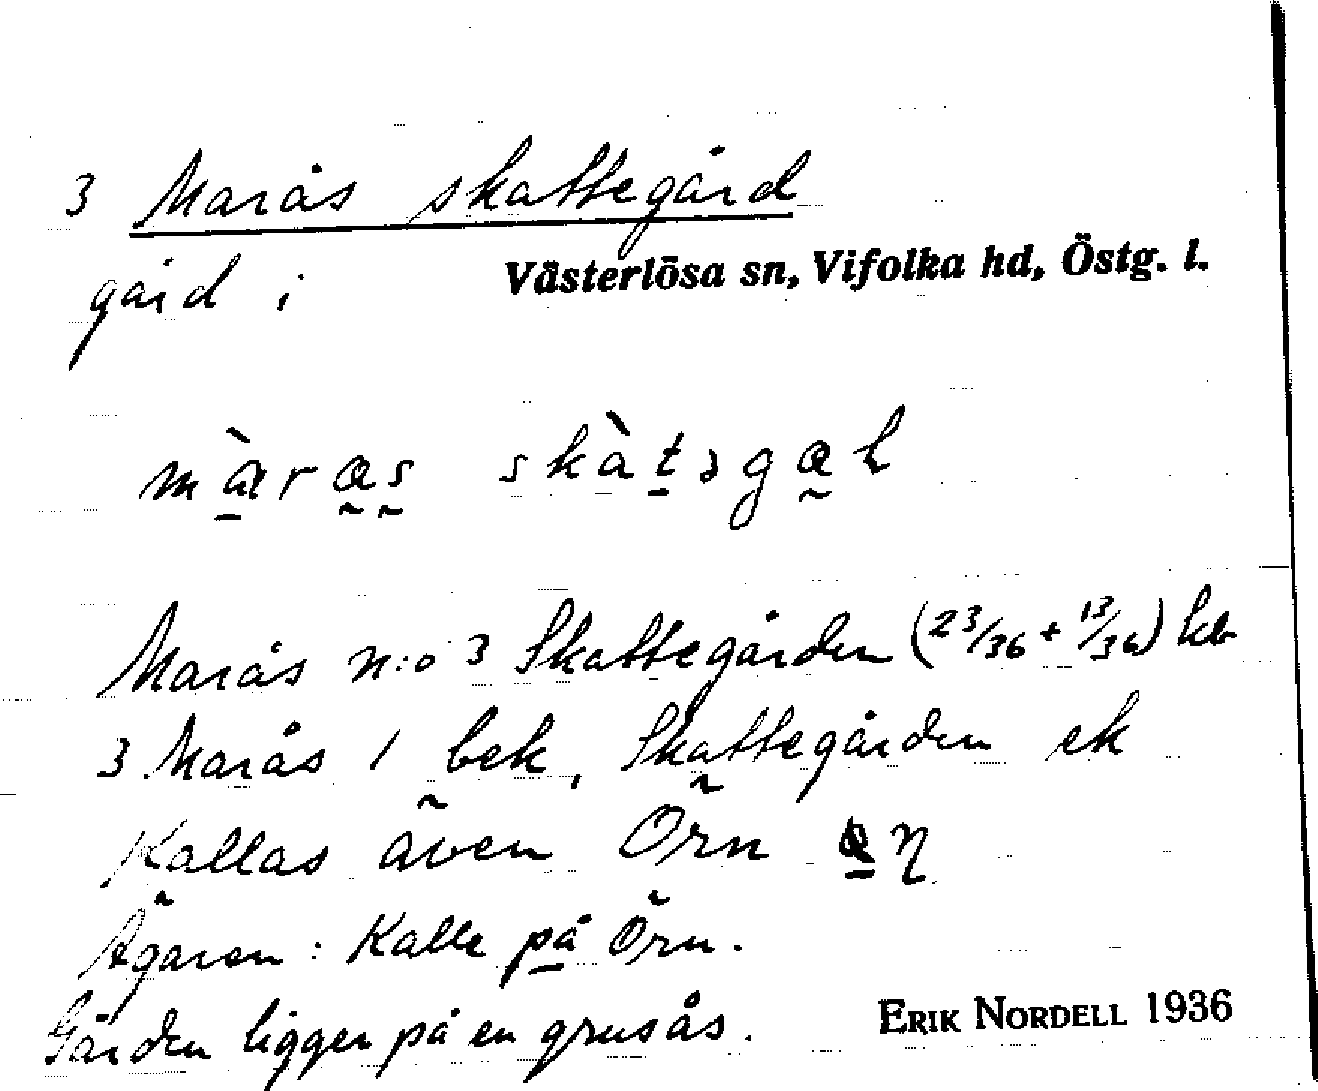 3 Marås skattegård
gård i Västerlösa sn, Vifolka hd, Östg. l.
Marås n:o 3 Skattegården (23/36 + 13/36) kb
3 Marås 1 bek, Skattegården ek
Kallas även Örn
Ägaren: Kalle på Örn.
Gården ligger på en grusås.
ERIK NORDELL 1936